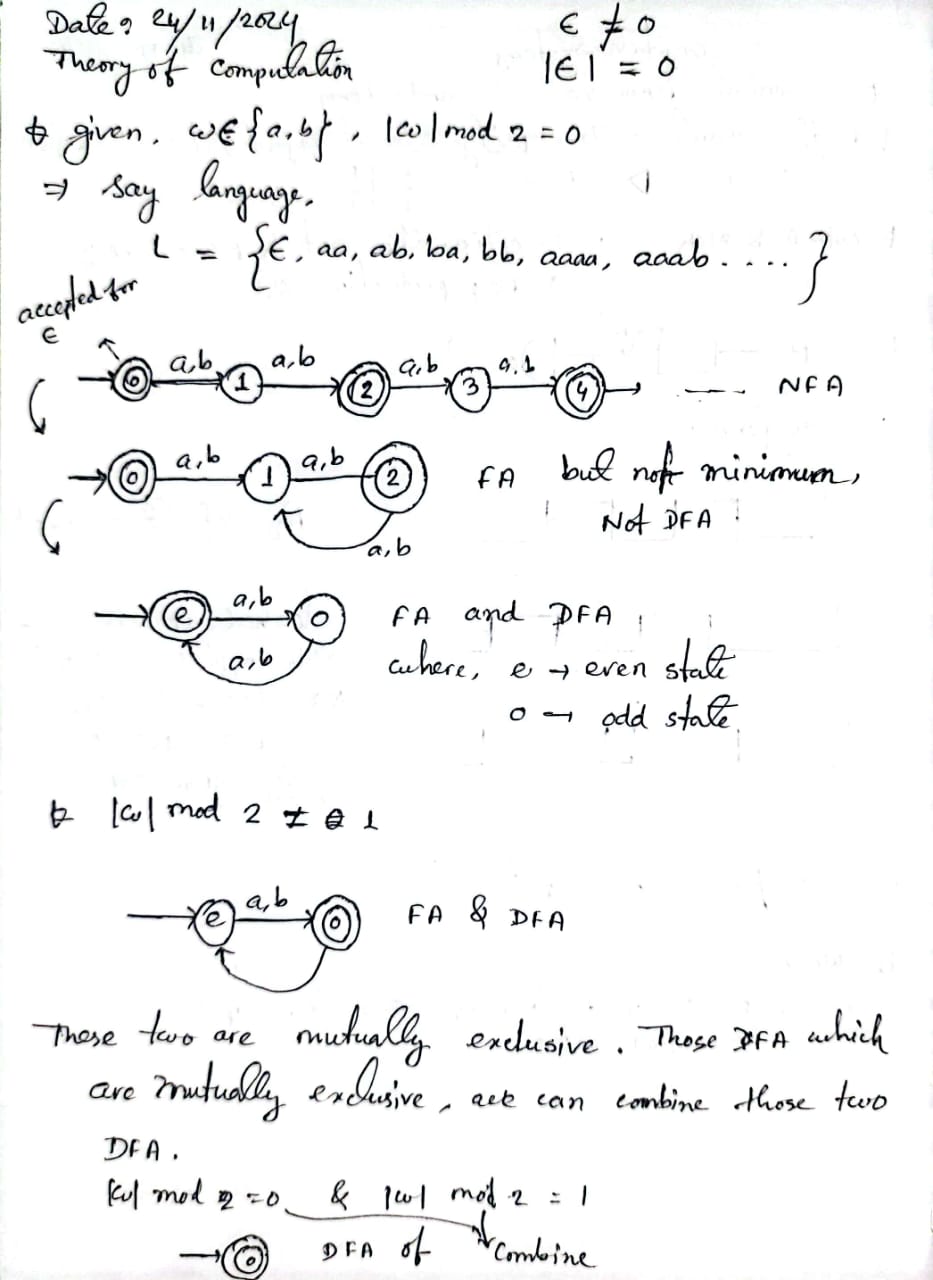 Date: 24/11/2024
ε ≠ 0
Theory of Computation
|ε| = 0
given, w∈{a,b}, |w| mod 2 = 0
⇒ say language,
L = {ε, aa, ab, ba, bb, aaaa, aaab ....}
accepted for
ε
0 a,b 1 a,b 2 a,b 3 a,b 4 NFA
0 a,b 1 a,b 2 FA but not minimum,
Not DFA
a,b
e a,b o FA and DFA
a,b where, e → even state
o → odd state
|w| mod 2 ≠ 1
e a,b o FA & DFA
These two are mutually exclusive. Those DFA which
are mutually exclusive, can combine those two
DFA.
|w| mod 2 = 0 & |w| mod 2 = 1
0 DFA of Combine